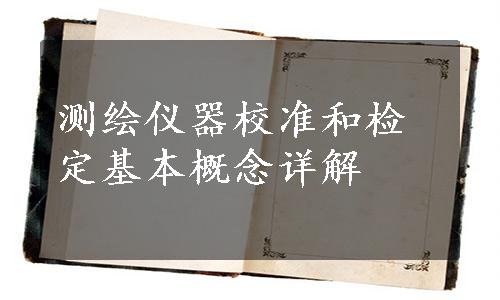 测绘仪器校准和检
定基本概念详解